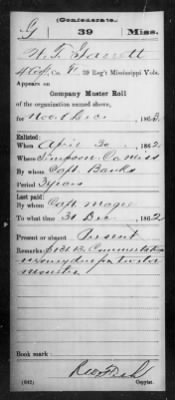 (Confederate.)
G 39 Miss.
W. F. Garrett
4 Cpl, Co. G, 39 Reg't Mississippi Vols.
Appears on
Company Muster Roll
of the organization named above,
for Nov & Dec, 1862.
Enlisted:
When April 30, 1862
Where Simpson Co Miss
By whom Capt. Banks
Period 3 years
Last paid:
By whom Capt. Magee
To what time 31 Dec, 1862
Present or absent Present
Remarks: Commutation
money due for two
months
Book mark:
(642) Copyist.